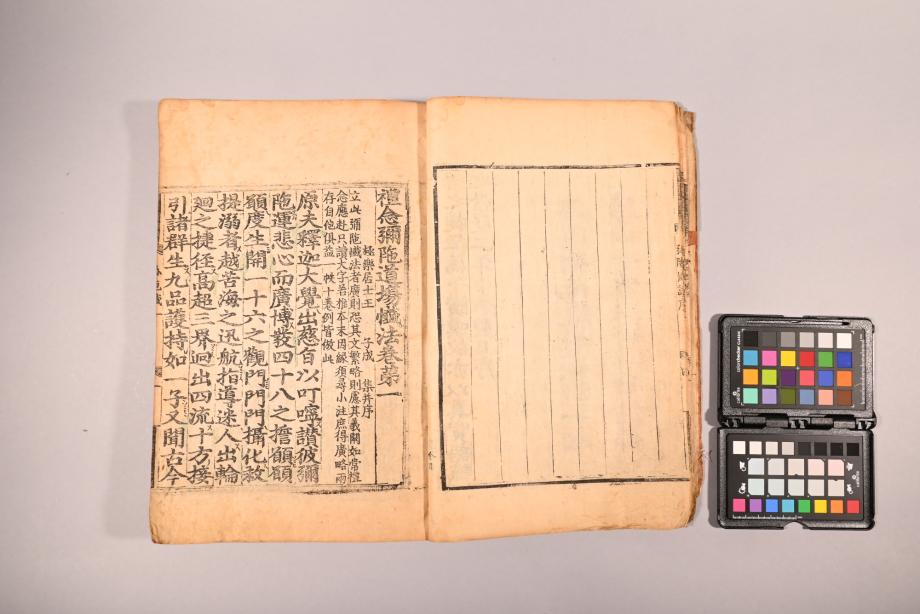 禮念彌陁道場懺法卷第一
極樂居士王 子成 集并序
立此彌陁懺法者廣則恐其文繁略則慮其義闕如常恒
念應赴只讀大字若推本末因緣須尋小注庶得廣略兩
存自他俱益一帙十卷例皆倣此
原夫釋迦大覺出慈旨以叮嚀讃彼彌
陁運悲心而廣博發四十八之擔願願
願度生開一十六之觀門門門攝化救
掁溺者越苦海之迅航指導迷人出輪
廻之捷径高超三界迥出四流十方接
引諸群生九品護持如一子又聞古今